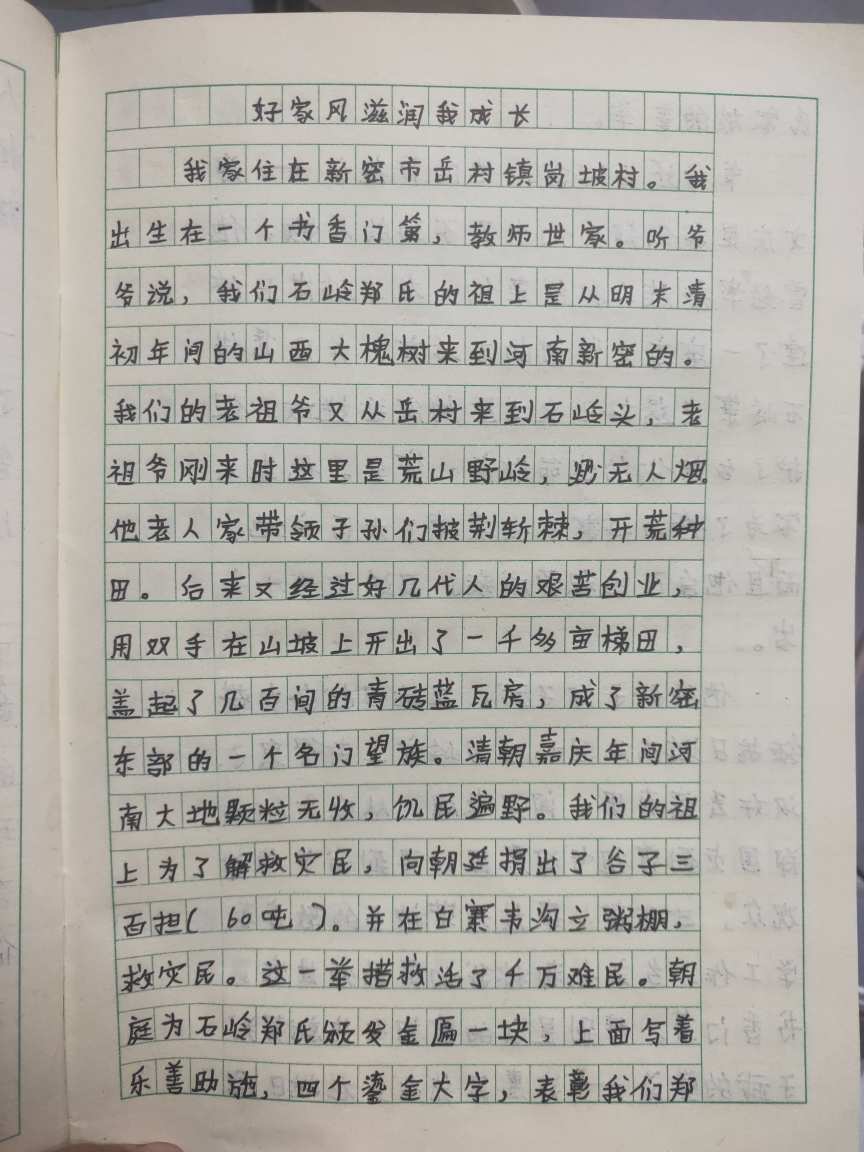 好家风滋润我成长
我家住在新密市岳村镇岗坡村。我
出生在一个书香门第，教师世家。听爷
爷说，我们石岭郑氏的祖上是从明末清
初年间的山西大槐树来到河南新密的。
我们的老祖爷又从岳村来到石岭头，老
祖爷刚来时这里是荒山野岭，渺无人烟.
他老人家带领子孙们披荆斩棘，开荒种
田。后来又经过好几代人的艰苦创业，
用双手在山坡上开出了一千多亩梯田，
盖起了几百间的青砖蓝瓦房，成了新密
东部的一个名门望族。清朝嘉庆年间河
南大地颗粒无收，饥民遍野。我们的祖
上为了解救灾民，向朝廷捐出了谷子三
百担(60吨)。并在白寨韦沟立粥棚，
救灾民。这一举措救活了千万难民。朝
庭为石岭郑氏颁发金匾一块，上面写着
乐善助施，四个鎏金大字，表彰我们郑